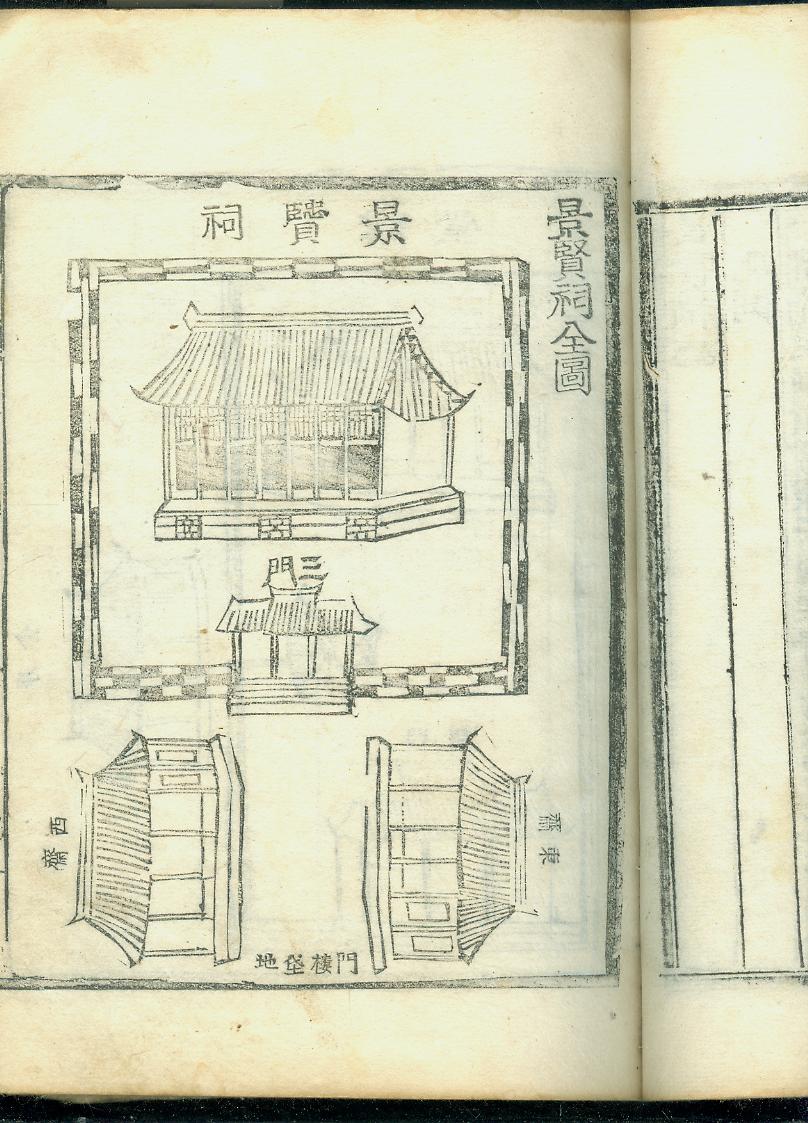 景賢祠全圖
景賢祠
三門
東齋
西齋
門樓垈地